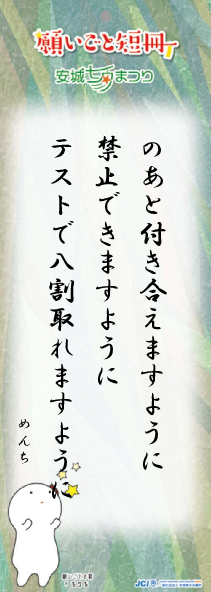 願いごと短冊
安城七夕まつり
のあと付き合えますように
禁止できますように
テストで八割取れますように
めんち
JCI